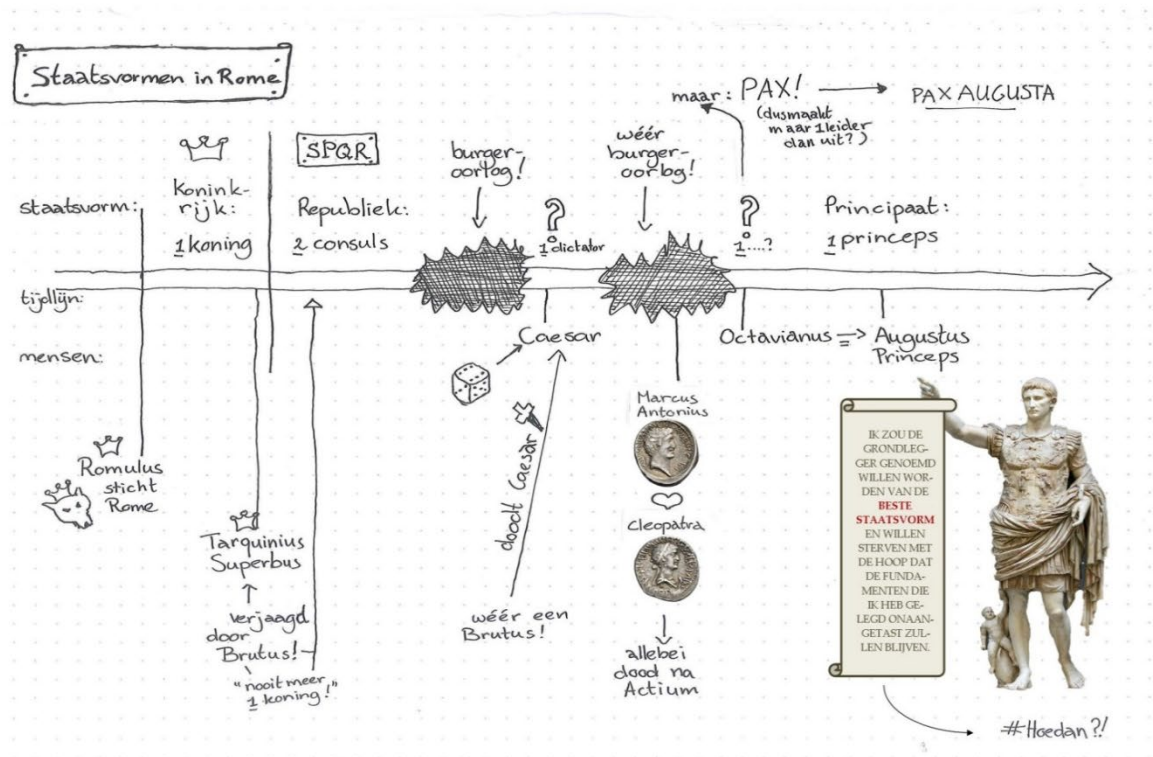 Staatsvormen in Rome
maar: PAX!
PAX AUGUSTA
(dusmaakt
maar 1 leider
dan uit?)
staatsvorm:
Konink-
rijk:
1 koning
SPQR
Republiek:
2 consuls
burger-
oorlog!
?
1 dictator
wéér
burger-
oorlog!
?
1....?
Principaat:
1 princeps
tijdlijn:
mensen:
Romulus
sticht
Rome
Tarquinius
Superbus
verjaagd
door
Brutus!
"nooit meer
1 koning!"
Caesar
doodt Caesar
wéér een
Brutus!
Marcus
Antonius
Cleopatra
allebei
dood na
Actium
Octavianus => Augustus
Princeps
IK ZOU DE
GRONDLEG-
GER GENOEMD
WILLEN WOR-
DEN VAN DE
BESTE
STAATSVORM
EN WILLEN
STERVEN MET
DE HOOP DAT
DE FUNDA-
MENTEN DIE
IK HEB GE-
LEGD ONAAN-
GETAST ZUL-
LEN BLIJVEN.
#Hoedan?!